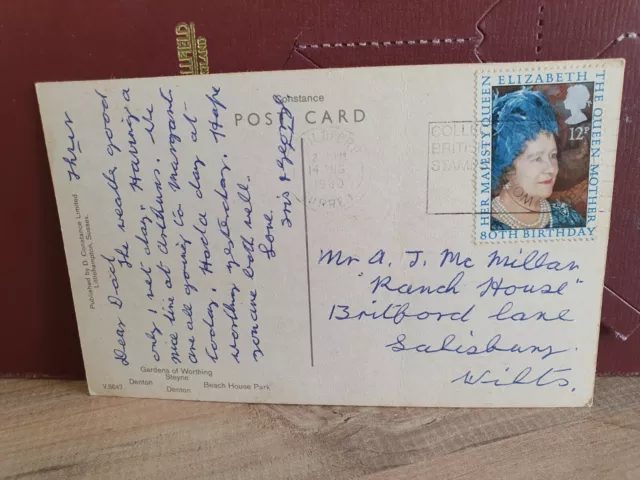 LLFIELD
LAND
Constance
POST CARD
Thurs
Dear Dad
The weather good
only 1 wet day. Having a
nice time at Arthurs. We
are all going to Margaret
today. Had a day at
Worthing yesterday. Hope
you are both well.
Love.
Iris & George
14 AUG
1980
COLLE
BRITIS
STAM
OM
HER MAJESTY QUEEN
ELIZABETH
THE QUEEN MOTHER
80TH BIRTHDAY
12P
Mr A. J. Mc Millan
"Ranch House"
Britford Lane
Salisbury.
Wilts.
Published by D. Constance Limited
Littlehampton, Sussex.
V.8647
Gardens of Worthing
Denton Steyne
Denton Beach House Park